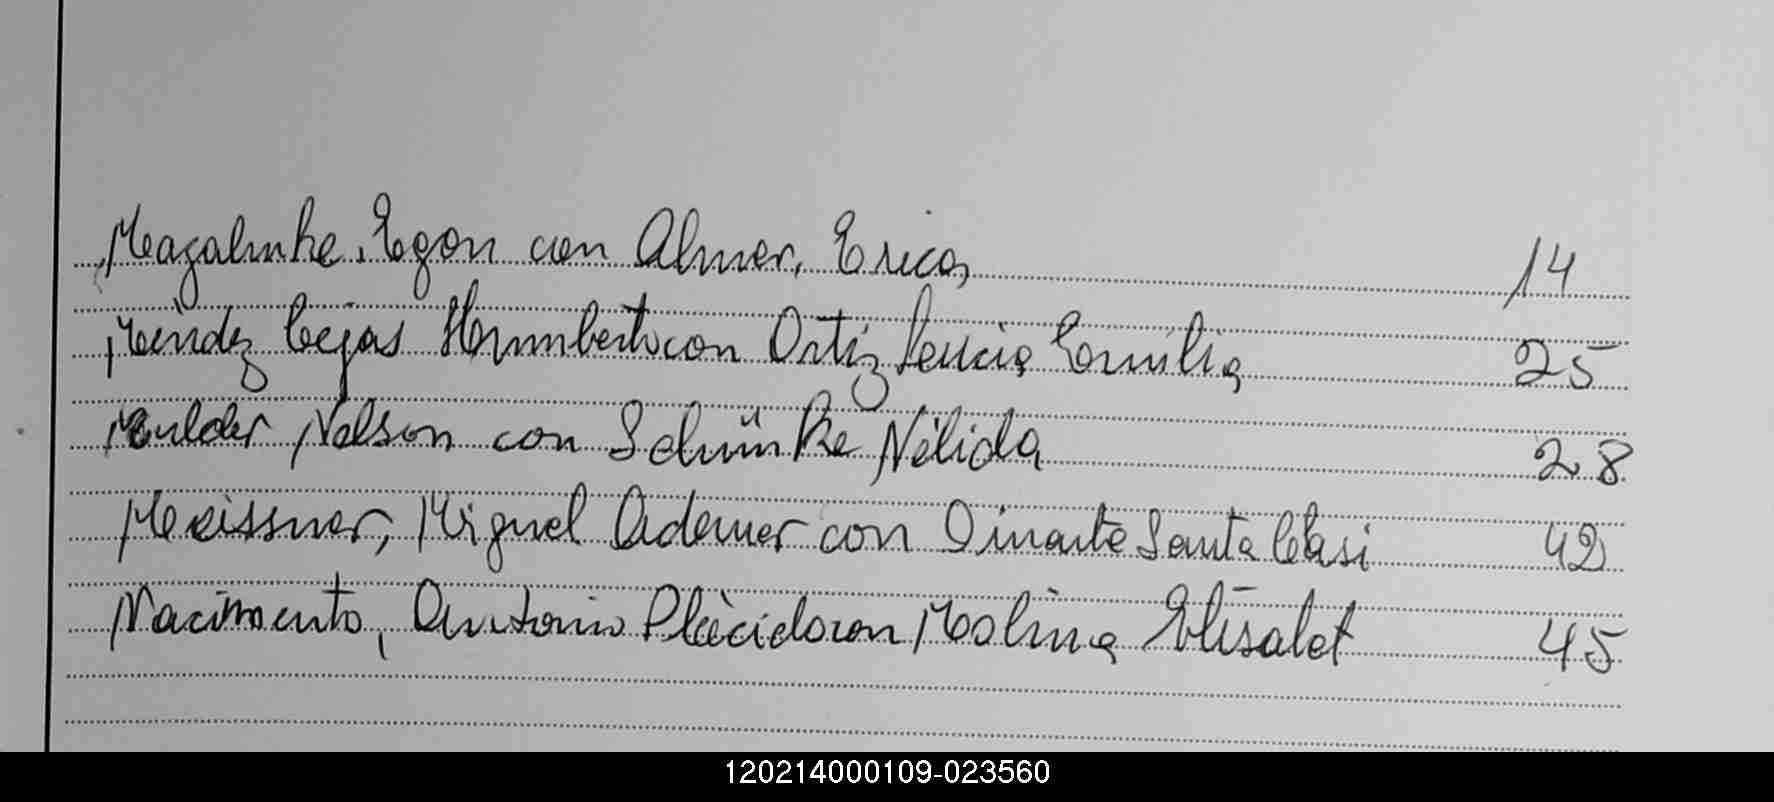 Magalinke, Egon con Almer, Erica 14
Méndez Cejas Humberto con Ortiz Lucia Emilia 25
Mulder Nelson con Schünke Nélida 28
Meissner, Miguel Ademer con Duarte Santa Clasi 42
Nacimento, Antonio Plàcido con Molina Elisabet 45
120214000109-023560